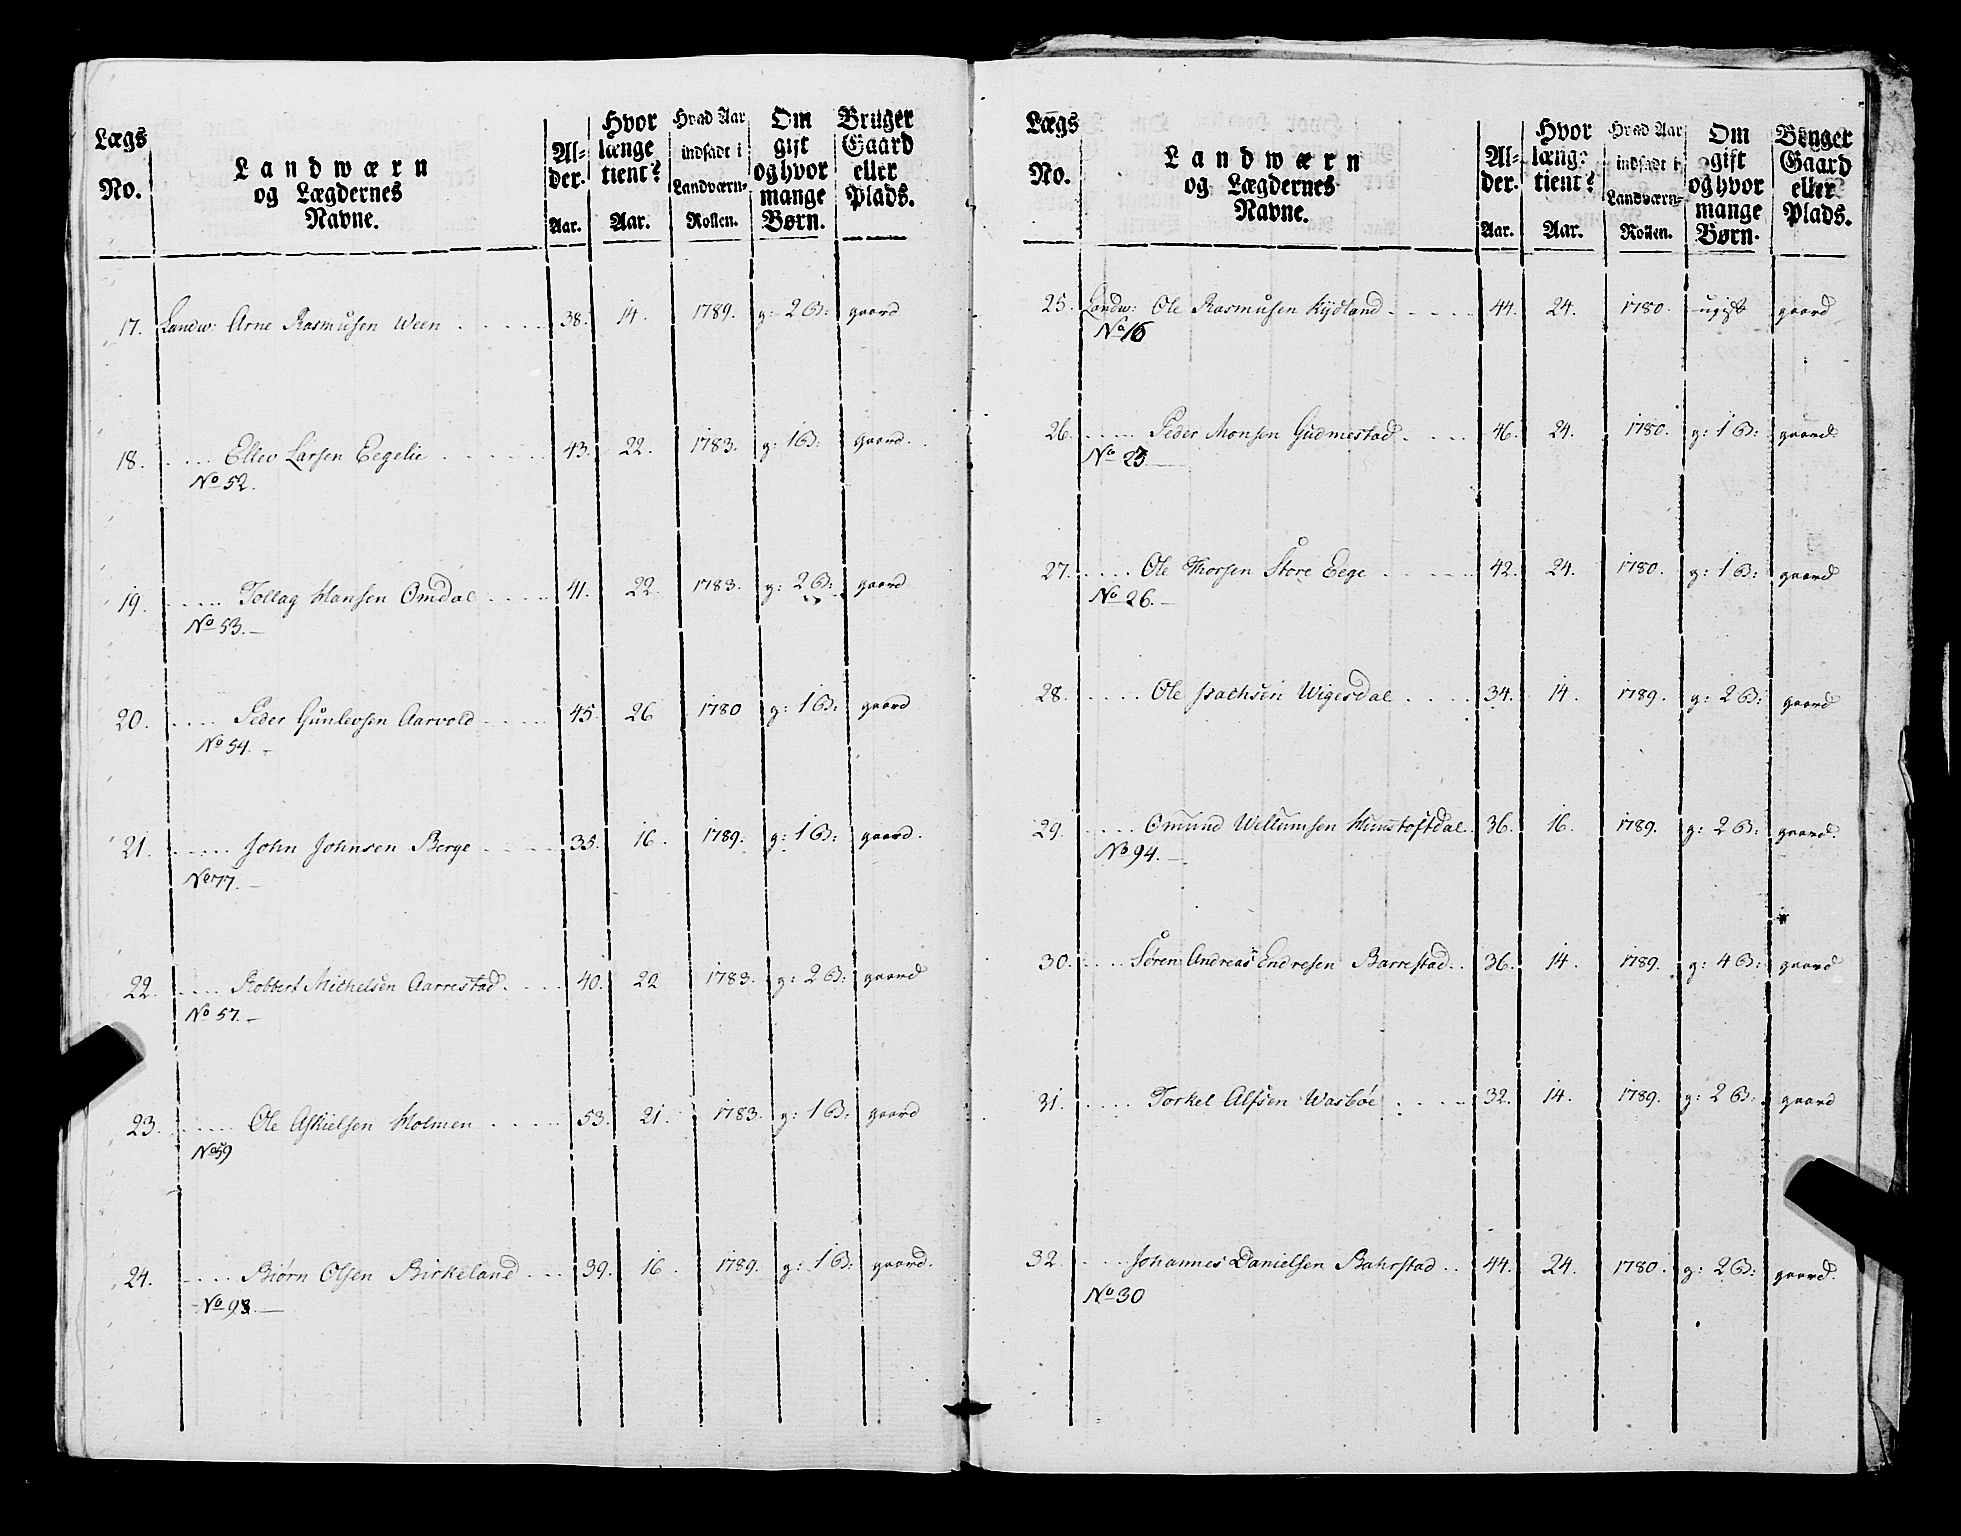 Lægs No. | Landwærn og Lægdernes Navne. | Al-der. Aar. | Hvor længe tient? Aar. | Hvad Aar indsadt i Landværn-Rollen. | Om gift og hvor mange Børn. | Bruger Gaard eller Plads.
17. Landw: Arne Rasmusen Ween 38. 14. 1789. g: 2 B: gaard
18. Ellev Larsen Eegelie 43. 22. 1783. g: 1 B: gaard.
No 52.
19. Tollag Hansen Omdal 41. 22. 1783. g: 2 B: gaard
No 53.
20. Peder Gunlevsen Aarvold 45. 26 1780 g: 1 B: gaard
No 54.
21. John Johnsen Berge 35. 16 1789. g: 1 B: gaard.
No 77.
22. Robbert Michelsen Aarrestad. 40. 22 1783. g: 2 B: gaard
No 57.
23. Ole Askielsen Holmen 53. 21. 1783. g: 1 B: gaard
No 59
24. Biørn Olsen Birkeland 39. 16 1789. g: 1 B: gaard.
No 93.
Lægs No. | Landwærn og Lægdernes Navne. | Al-der. Aar. | Hvor længe tient? Aar. | Hvad Aar indsadt i Landværn-Rollen. | Om gift og hvor mange Børn. | Bruger Gaard eller Plads.
25. Landw: Ole Rasmusen Kydland 44. 24. 1780. ugift gaard
No 16
26. Peder Monsen Gudmestad 46. 24. 1780. g: 1 B: gaard
No 25
27. Ole Thorsen Store Eege 42. 24. 1780. g: 1 B: gaard
No 26.
28. Ole Isachsen Wigesdal 34. 14. 1789. g: 2 B: gaard
29. Omund Willumsen Hunstoftdal 36. 16. 1789. g: 2 B: gaard
No 94.
30. Søren Andreas Endresen Barrestad 36. 14. 1789. g: 4 B: gaard
31. Torkel Alfsen Wasbøe 32. 14. 1789. g: 2 B: gaard
32. Johannes Danielsen Bahrstad 44. 24. 1780. g: 2 B: gaard.
No 30